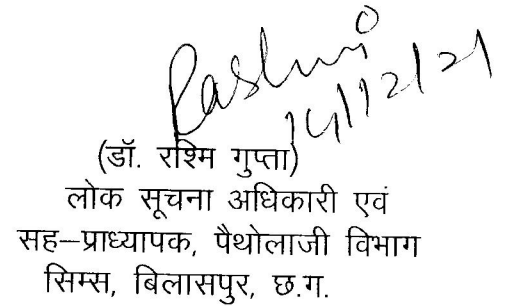 Rashmi
14/12/21
(डॉ. रश्मि गुप्ता)
लोक सूचना अधिकारी एवं
सह–प्राध्यापक, पैथोलाजी विभाग
सिम्स, बिलासपुर, छ.ग.